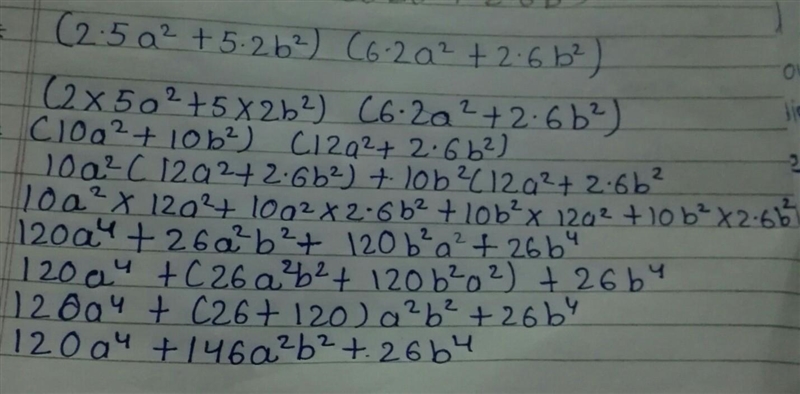 (2·5a² + 5·2b²) (6·2a² + 2·6b²)
(2×5a² + 5×2b²) (6·2a² + 2·6b²)
(10a² + 10b²) (12a² + 2·6b²)
10a² (12a² + 2·6b²) + 10b² (12a² + 2·6b²
10a² × 12a² + 10a² × 2·6b² + 10b² × 12a² + 10b² × 2·6b²
120a⁴ + 26a²b² + 120b²a² + 26b⁴
120a⁴ + (26a²b² + 120b²a²) + 26b⁴
120a⁴ + (26 + 120) a²b² + 26b⁴
120a⁴ + 146a²b² + 26b⁴